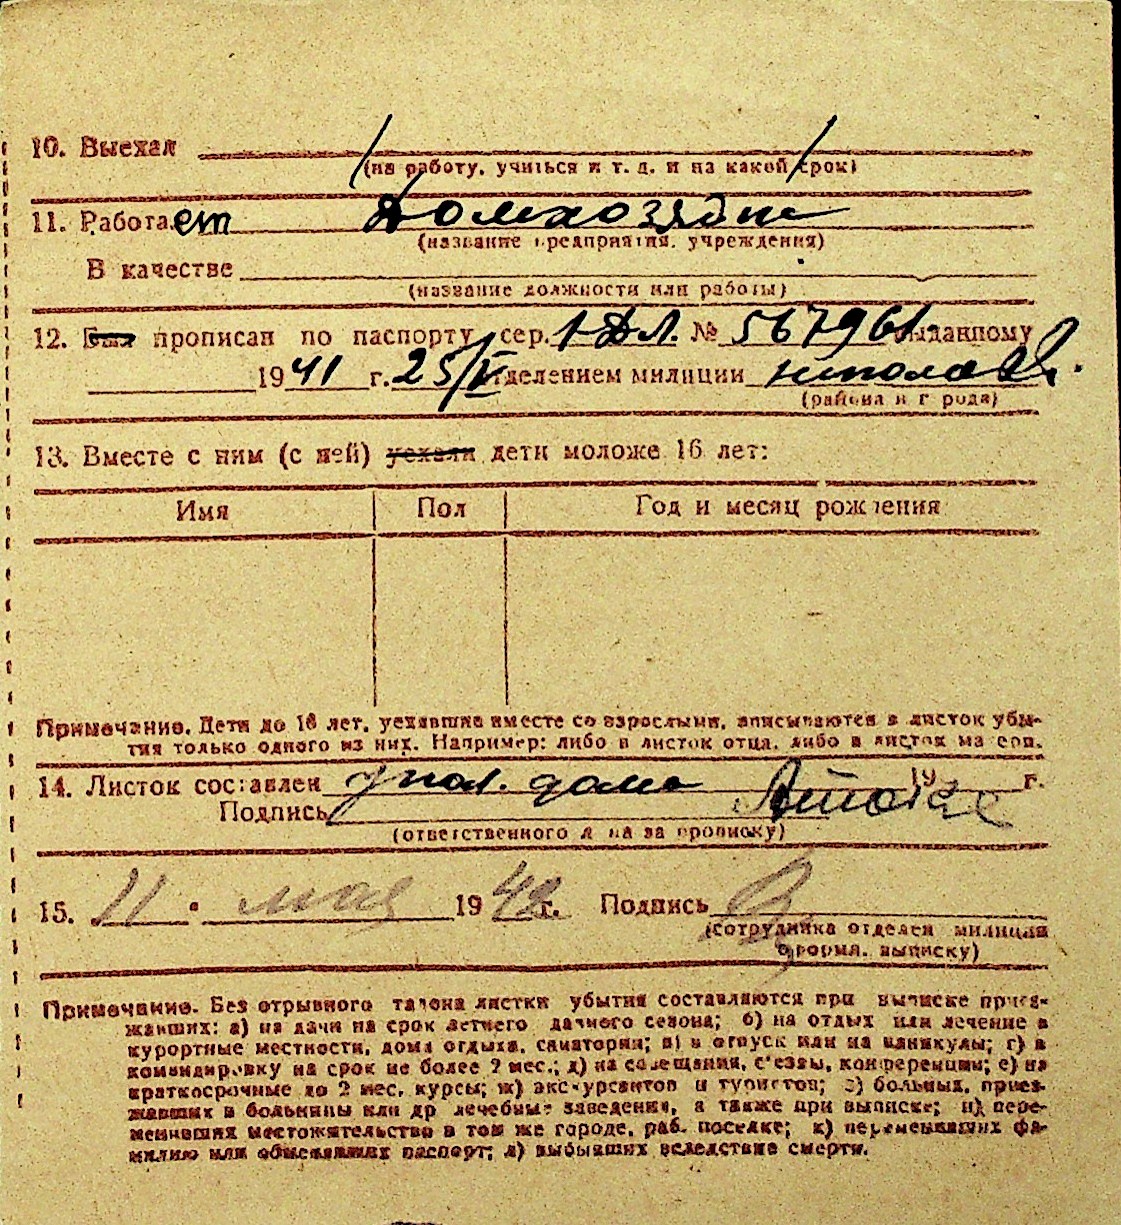 10. Выехал
(на работу, учиться и т. д. и на какой срок)
11. Работает Домхозяйк
(название предприятия, учреждения)
В качестве
(название должности или работы)
12. Был прописан по паспорту сер. 1-ДЛ. № 567961 выданному
1941 г. 25/V отделением милиции
(района и города)
13. Вместе с ним (с ней) уехали дети моложе 16 лет:
Имя Пол Год и месяц рождения
Примечание. Дети до 16 лет, уехавшие вместе со взрослыми, вписываются в листок убы-
тия только одного из них. Например: либо в листок отца, либо в листок матери.
14. Листок составлен упол. дома 19 г.
Подпись
(ответственного лица за прописку)
15. 11 мая 1942 г. Подпись
(сотрудника отделен милиции
оформл. выписку)
Примечание. Без отрывного талона листки убытия составляются при выписке приез-
жавших: а) на дачи на срок летнего дачного сезона; б) на отдых или лечение в
курортные местности, дома отдыха, санатории; в) в отпуск или на каникулы; г) в
командировку на срок не более 2 мес.; д) на совещания, съезды, конференции; е) на
краткосрочные до 2 мес. курсы; ж) экскурсантов и туристов; з) больных, приез-
жавших в больницы или др лечебные заведения, а также при выписке; и) пере-
менивших местожительство в том же городе, раб. поселке; к) переменивших фа-
милию или обменявших паспорт; л) выбывших вследствие смерти.